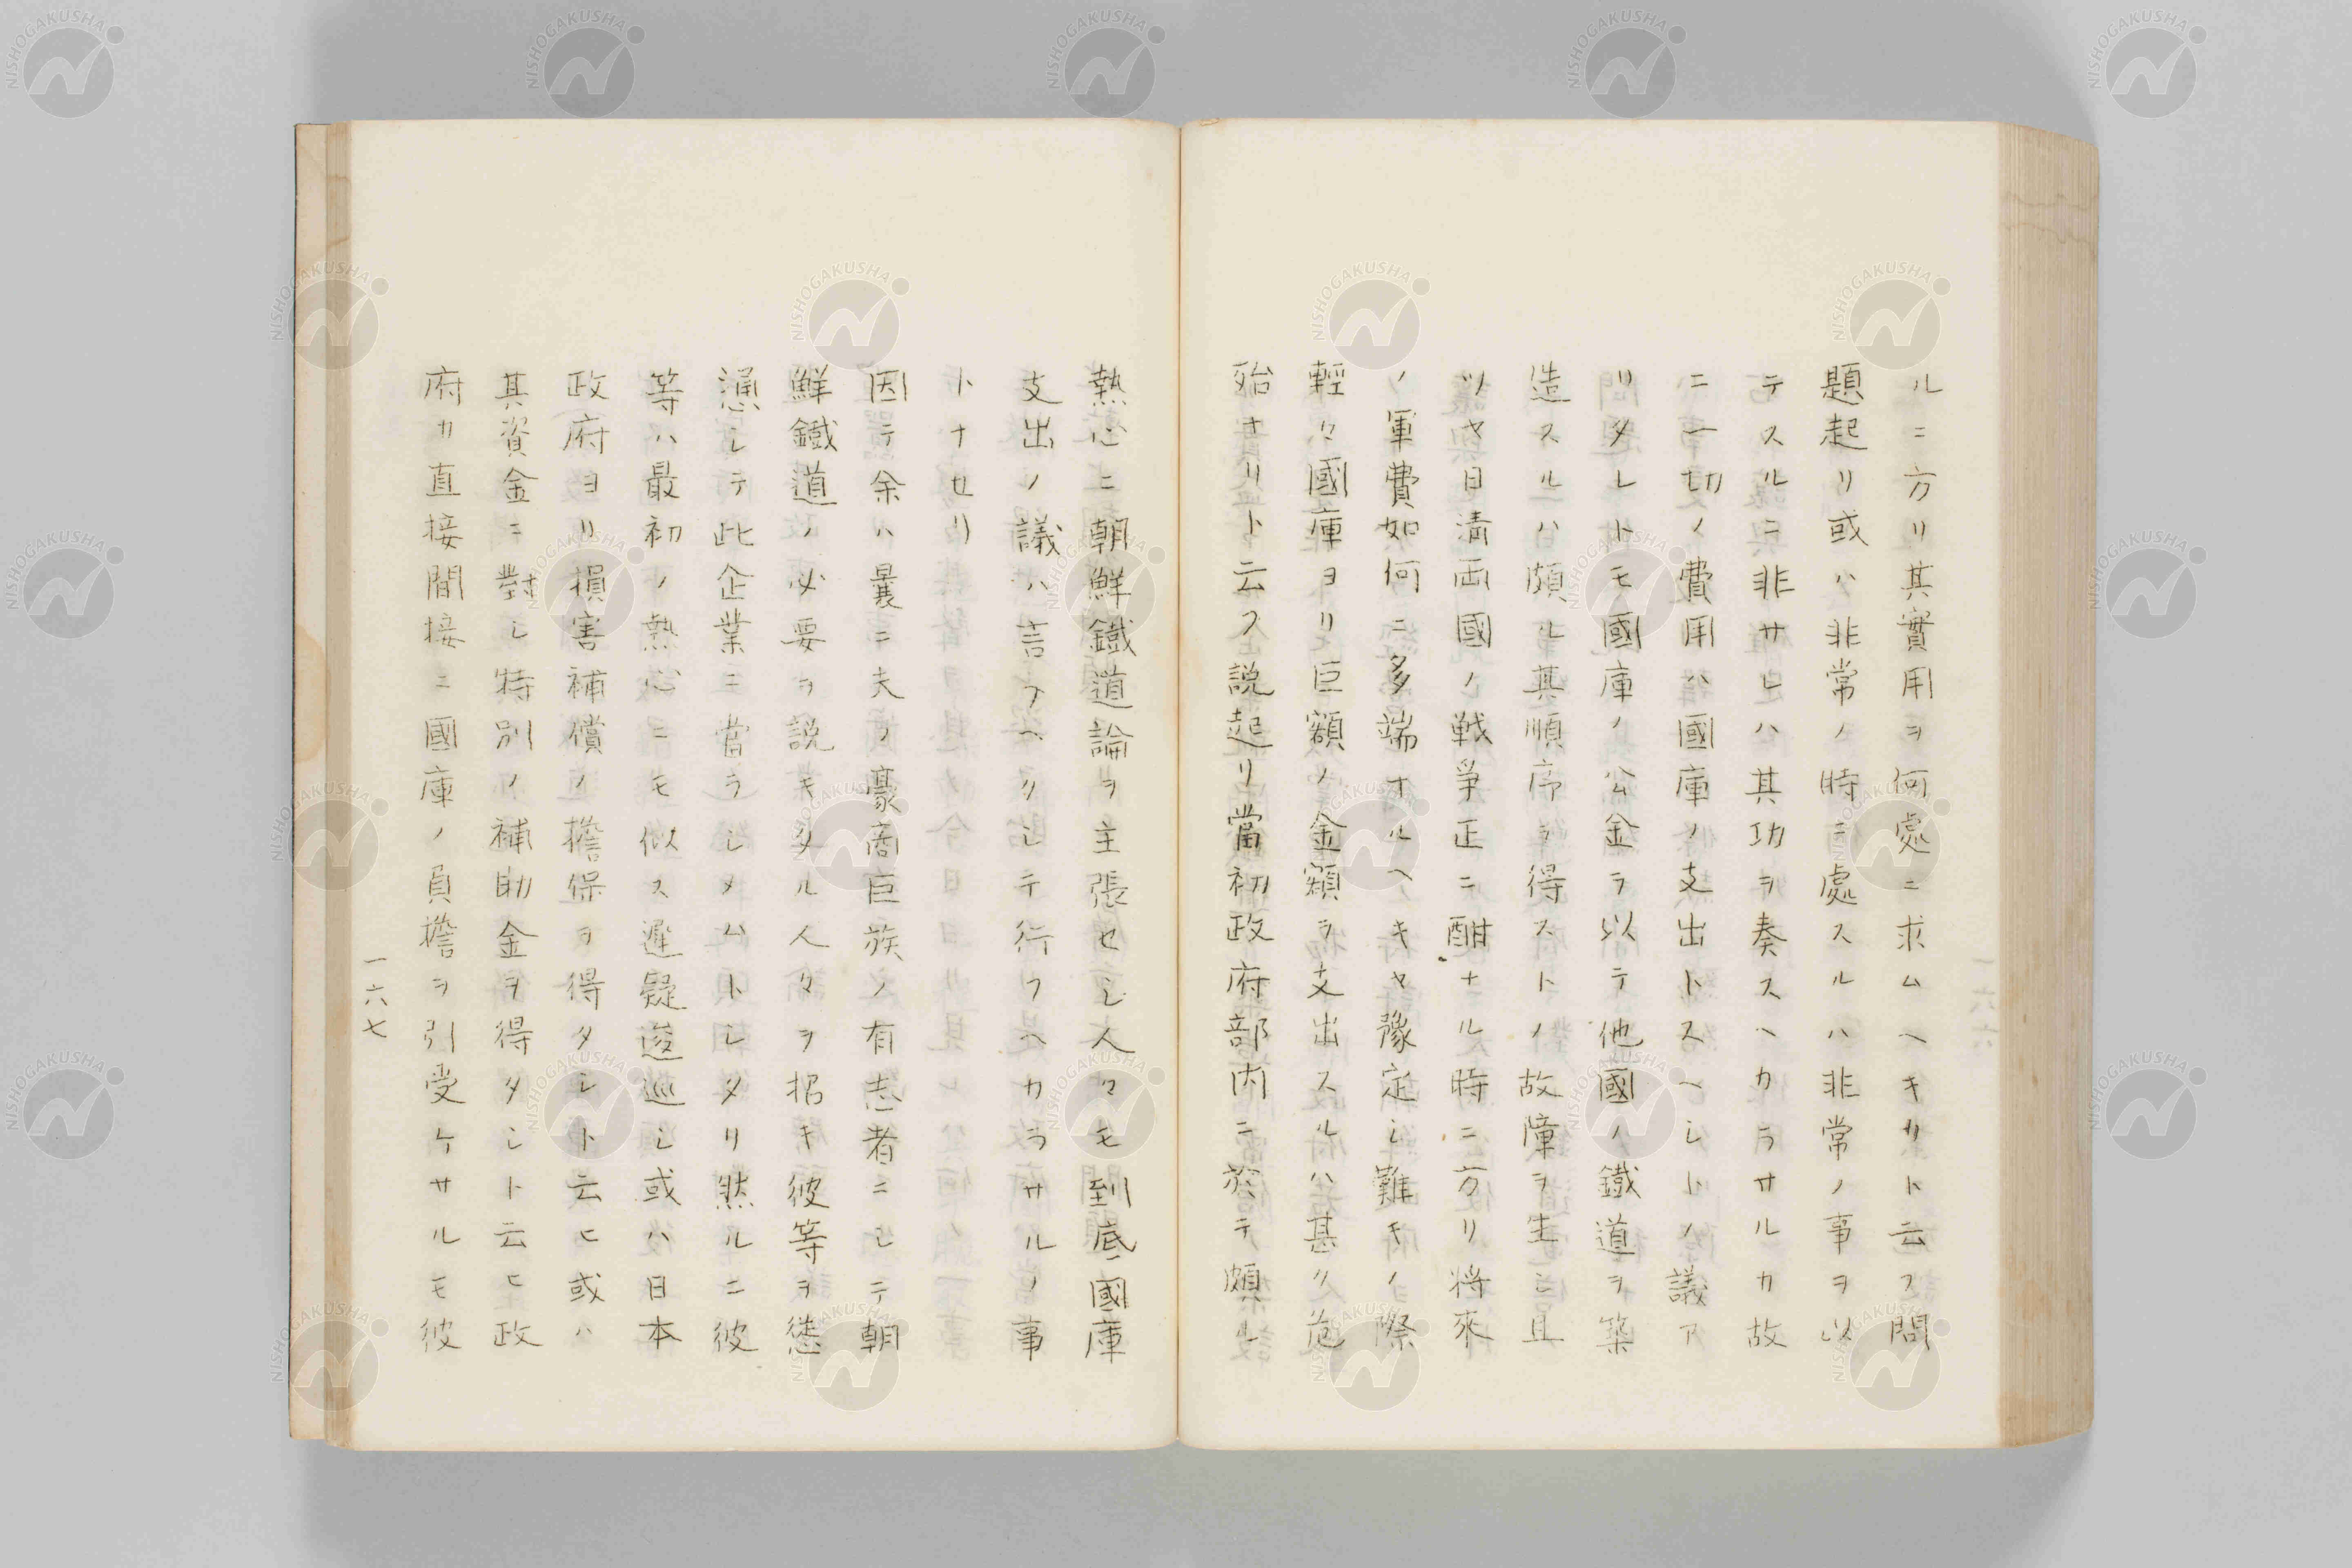 ルニ方リ其實用ヲ何處ニ求ムヘキカト云ス問
題起リ或ハ非常ノ時ニ處スルハ非常ノ事ヲ以
テスルニ非サレハ其功ヲ奏スヘカラサルカ故
ニ一切ノ費用ハ國庫ノ支出トスヘシトノ議ア
リタレトモ國庫ノ公金ヲ以テ他國ノ鐵道ヲ築
造スルハ頗ル其順序ヲ得ストノ故障ヲ生シ且
ツヤ日清両國ノ戦爭正ニ酣ナル時ニ方リ将來
ノ軍費如何ニ多端ナルヘキヤ豫定シ難キノ際
輕々國庫ヨリ巨額ノ金額ヲ支出スルハ甚タ危
殆ナリト云フ説起リ當初政府部内ニ於テ頗ル
熱心ニ朝鮮鐵道論ヲ主張セシ人々モ到底國庫
支出ノ議ハ言フヘクシテ行フヘカラサルノ事
トナセリ
因テ余ハ曩ニ夫ノ豪商巨族ノ有志者ニシテ朝
鮮鐵道ノ必要ヲ説キタル人々ヲ招キ彼等ヲ慫
慂シテ此企業ニ當ラシメムトシタリ然ルニ彼
等ハ最初ノ熱心ニモ似ス遲疑逡巡シ或ハ日本
政府ヨリ損害補償ノ擔保ヲ得タシト云ヒ或ハ
其資金ニ對シ特別ノ補助金ヲ得タシト云ヒ政
府カ直接間接ニ國庫ノ負擔ヲ引受ケサルモ彼
一六七
NISHOGAKUSHA